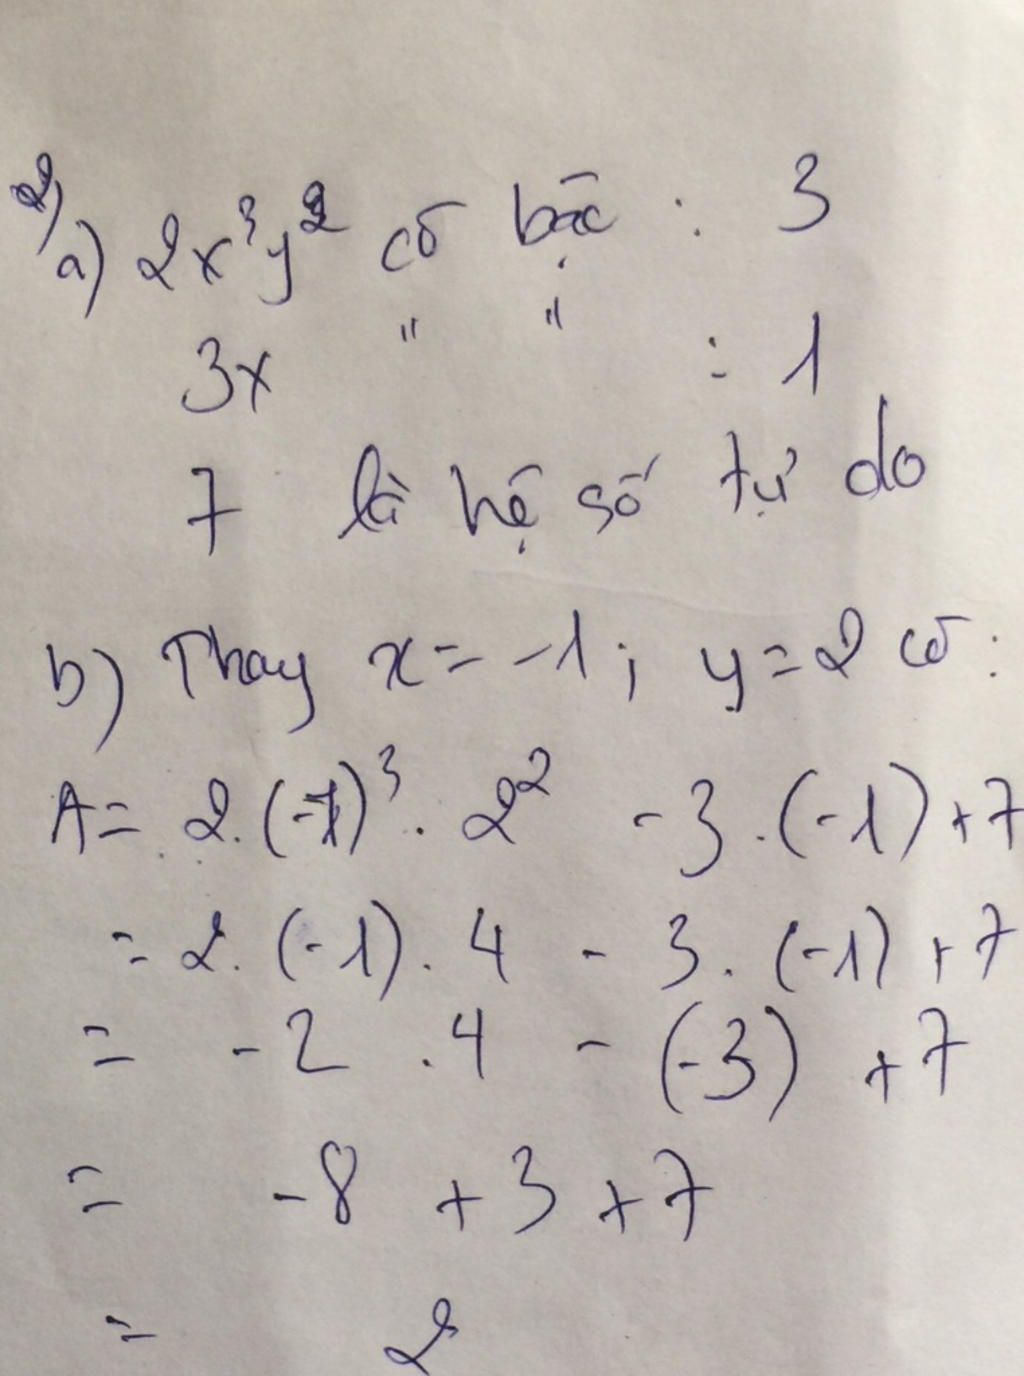 2)
a) 2x³y² có bậc : 3
3x " " : 1
7 là hệ số tự do
b) Thay x = -1; y = 2 có :
A = 2.(-1)³. 2² - 3.(-1) + 7
= 2. (-1). 4 - 3. (-1) + 7
= -2 .4 - (-3) + 7
= -8 + 3 + 7
= 2